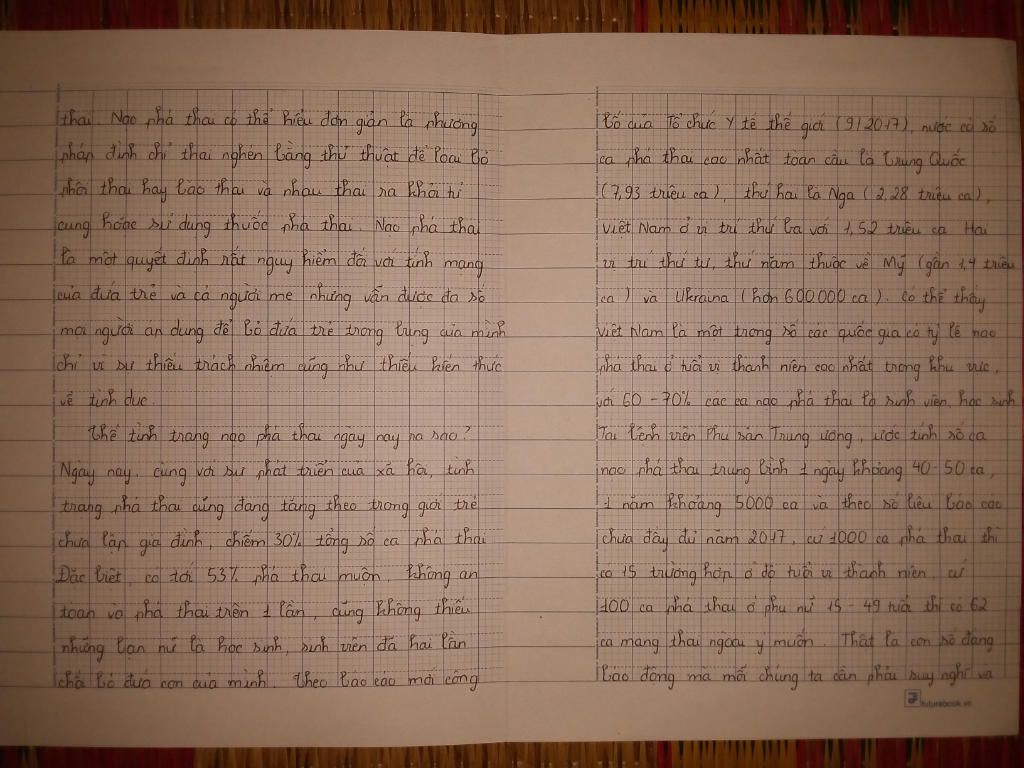 thai. Nạo phá thai có thể hiểu đơn giản là phương
pháp đình chỉ thai nghén bằng thủ thuật để loại bỏ
phôi thai hay bào thai và nhau thai ra khỏi tử
cung hoặc sử dụng thuốc phá thai. Nạo phá thai
là một quyết định rất nguy hiểm đối với tính mạng
của đứa trẻ và cả người mẹ nhưng vẫn được đa số
mọi người an dụng để bỏ đứa trẻ trong bụng của mình
chỉ vì sự thiếu trách nhiệm cũng như thiếu kiến thức
về tình dục.
Thế tình trạng nạo phá thai ngày nay ra sao?
Ngày nay, cùng với sự phát triển của xã hội, tình
trạng phá thai cũng đang tăng theo trong giới trẻ
chưa lập gia đình, chiếm 30% tổng số ca phá thai
Đặc biệt, có tới 53% phá thai muộn, không an
toàn và phá thai trên 1 lần, cũng không thiếu
những bạn nữ là học sinh, sinh viên đã hai lần
chối bỏ đứa con của mình. Theo báo cáo mới công
bố của Tổ chức Y tế thế giới (9/2017), nước có số
ca phá thai cao nhất toàn cầu là Trung Quốc
(7,93 triệu ca), thứ hai là Nga (2,28 triệu ca),
Việt Nam ở vị trí thứ ba với 1,52 triệu ca. Hai
vị trí thứ tư, thứ năm thuộc về Mỹ (gần 1,4 triệu
ca) và Ukraina (hơn 600.000 ca). Có thể thấy
Việt Nam là một trong số các quốc gia có tỷ lệ nạo
phá thai ở tuổi vị thành niên cao nhất trong khu vực,
với 60 - 70% các ca nạo phá thai là sinh viên, học sinh
Tại bệnh viện Phụ sản Trung ương, ước tính số ca
nạo phá thai trung bình 1 ngày khoảng 40-50 ca,
1 năm khoảng 5000 ca và theo số liệu báo cáo
chưa đầy đủ năm 2017, cứ 1000 ca phá thai thì
có 15 trường hợp ở độ tuổi vị thành niên, cứ
100 ca phá thai ở phụ nữ 15 - 49 tuổi thì có 62
ca mang thai ngoài ý muốn. Thật là con số đáng
báo động mà mỗi chúng ta cần phải suy nghĩ và
futurebook.vn